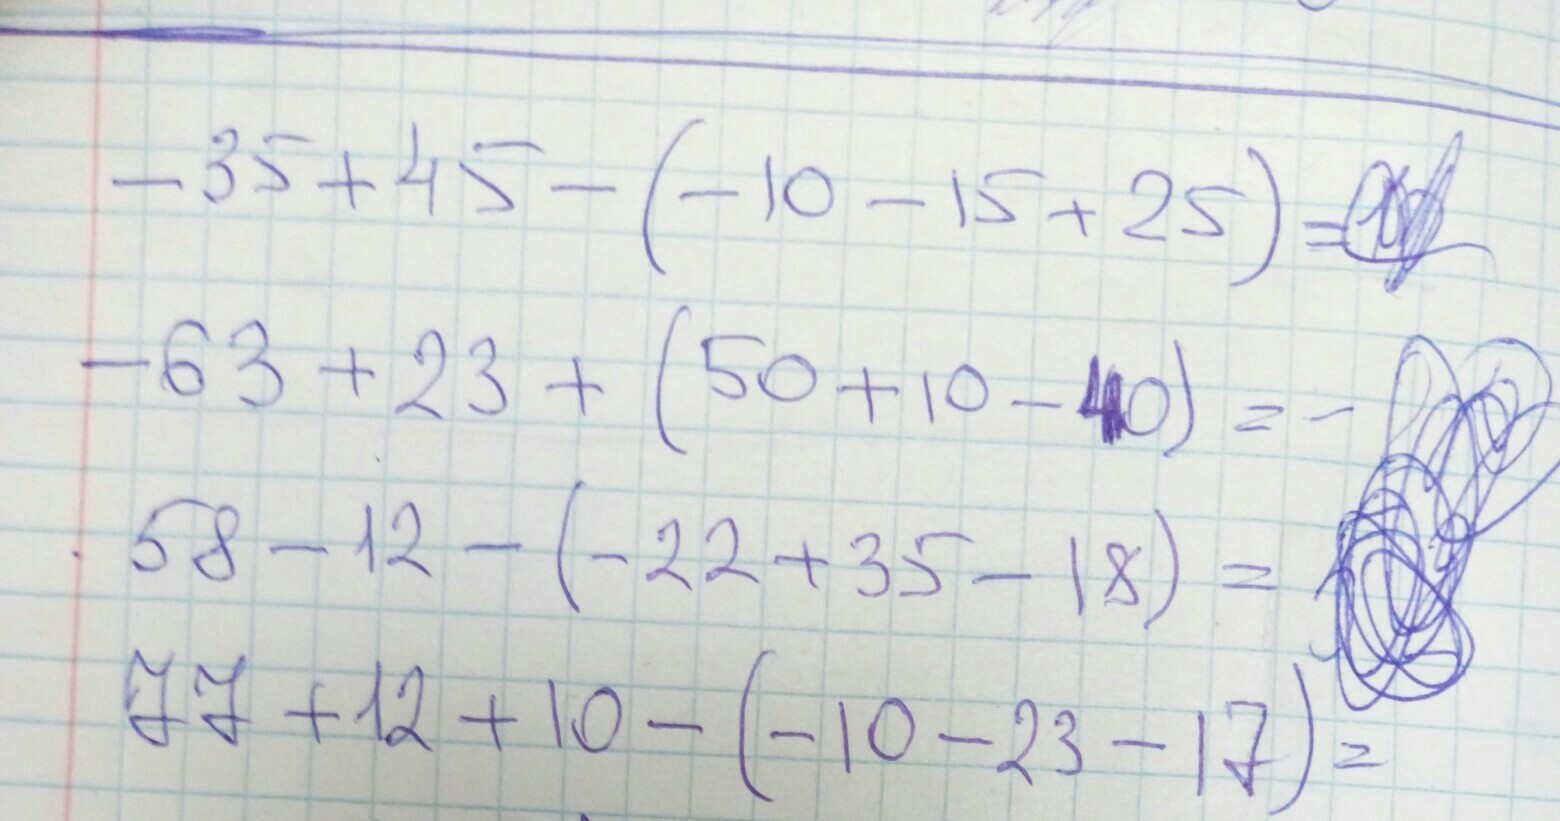 -35+45-(-10-15+25)=
-63+23+(50+10-40)=-
58-12-(-22+35-18)=
77+12+10-(-10-23-17)=